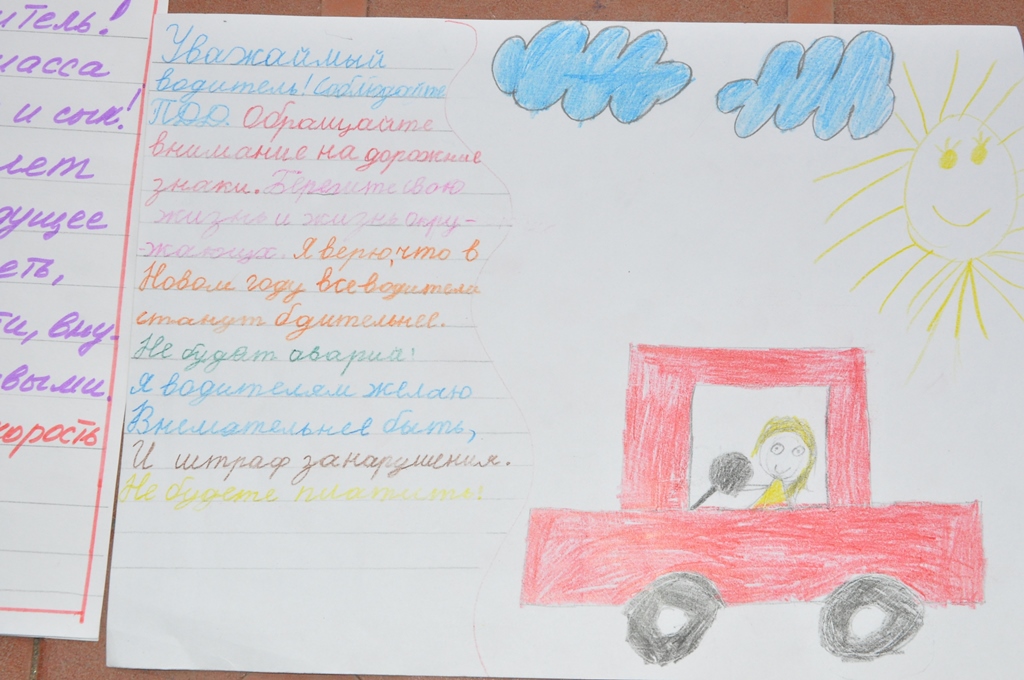 итель!
масса
и сын!
лет
дущее
еть,
ти, вну-
овыми.
корость
Уважаймый
водитель! Соблюдайте
ПДД. Обращайте
внимание на дорожние
знаки. Берегите свою
жизнь и жизнь окру-
жающих. Я верю, что в
Новом году все водители
станут бдительнее.
Не будет аварий!
Я водителям желаю
Внемательнее быть,
И штраф за нарушения.
Не будете платить!